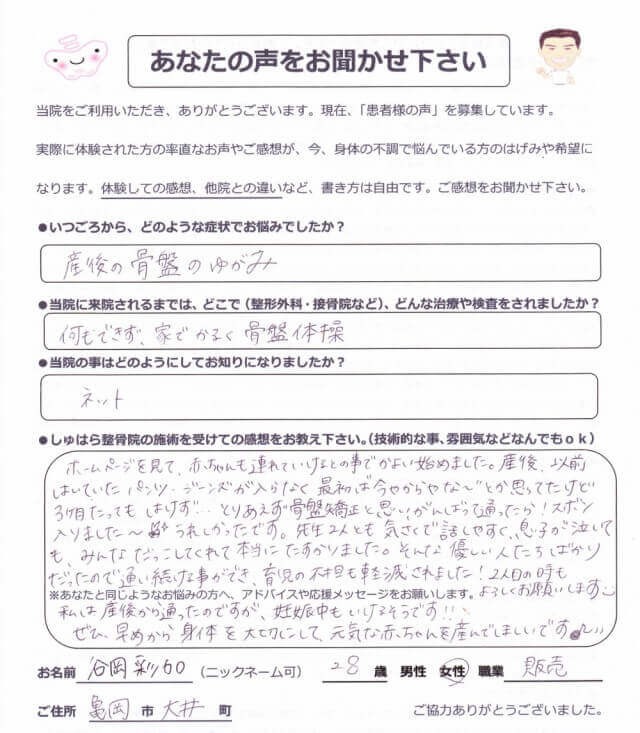 あなたの声をお聞かせ下さい
当院をご利用いただき、ありがとうございます。現在、「患者様の声」を募集しています。
実際に体験された方の率直なお声やご感想が、今、身体の不調で悩んでいる方のはげみや希望に
なります。体験しての感想、他院との違いなど、書き方は自由です。ご感想をお聞かせ下さい。
●いつごろから、どのような症状でお悩みでしたか？
産後の骨盤のゆがみ
●当院に来院されるまでは、どこで（整形外科・接骨院など）、どんな治療や検査をされましたか？
何もできず、家でかるく骨盤体操
●当院の事はどのようにしてお知りになりましたか？
ネット
●しゅはら整骨院の施術を受けての感想をお教え下さい。（技術的な事、雰囲気などなんでもｏｋ）
ホームページを見て、赤ちゃんも連れていけるとの事でかよい始めました。産後、以前
はいていたパンツ・ジーンズが入らなく最初は"今やからやな～"とか思ってたけど
3ヶ月たってもはけず… とりあえず骨盤矯正と思いがんばって通ったら！ズボン
入りました～ うれしかったです。先生2人とも気さくで話しやすく、息子が泣いて
も、みんなだっこしてくれて本当にたすかりました。そんな優しい人たちばかり
だったので通い続ける事ができ、育児の不担も軽減されました！2人目の時も
※あなたと同じようなお悩みの方へ、アドバイスや応援メッセージをお願いします。よろしくお願いします
私は産後から通ったのですが、妊娠中もいけるそうです!!
ぜひ、早めから身体を大切にして、元気な赤ちゃんを産んでほしいです
お名前 谷岡彩加 （ニックネーム可） 28 歳 男性 女性 職業 販売
ご住所 亀岡 市 大井 町 ご協力ありがとうございました。